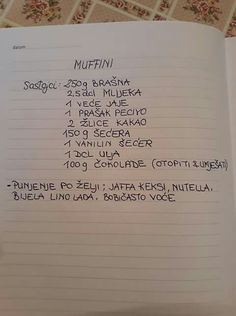 datum
MUFFINI
Sastojci: 250g BRAŠNA
2,5 dcl MLIJEKA
1 VEĆE JAJE
1 PRAŠAK PECIVO
2 ŽLICE KAKAO
150g ŠEĆERA
1 VANILIN ŠEĆER
1 DCL ULJA
100g ČOKOLADE (OTOPITI & UMJEŠATI)
- PUNJENJE PO ŽELJI; JAFFA KEKSI, NUTELLA.
BIJELA LINO LADA. BOBIČASTO VOĆE